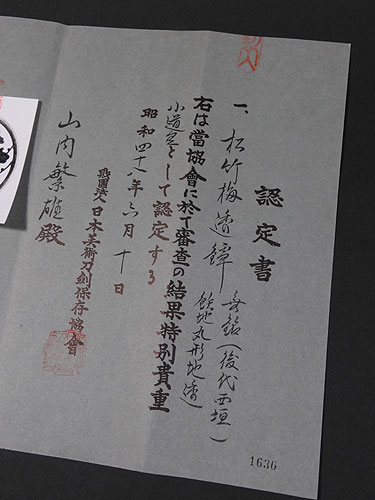 認定書
一、松竹梅透鐔 無銘(後代西垣)
鉄地丸形地透
右は當協會に於て審査の結果特別貴重
小道具として認定する
昭和四十八年六月十日
財團法人日本美術刀劍保存協會
山内繁雄殿
1636